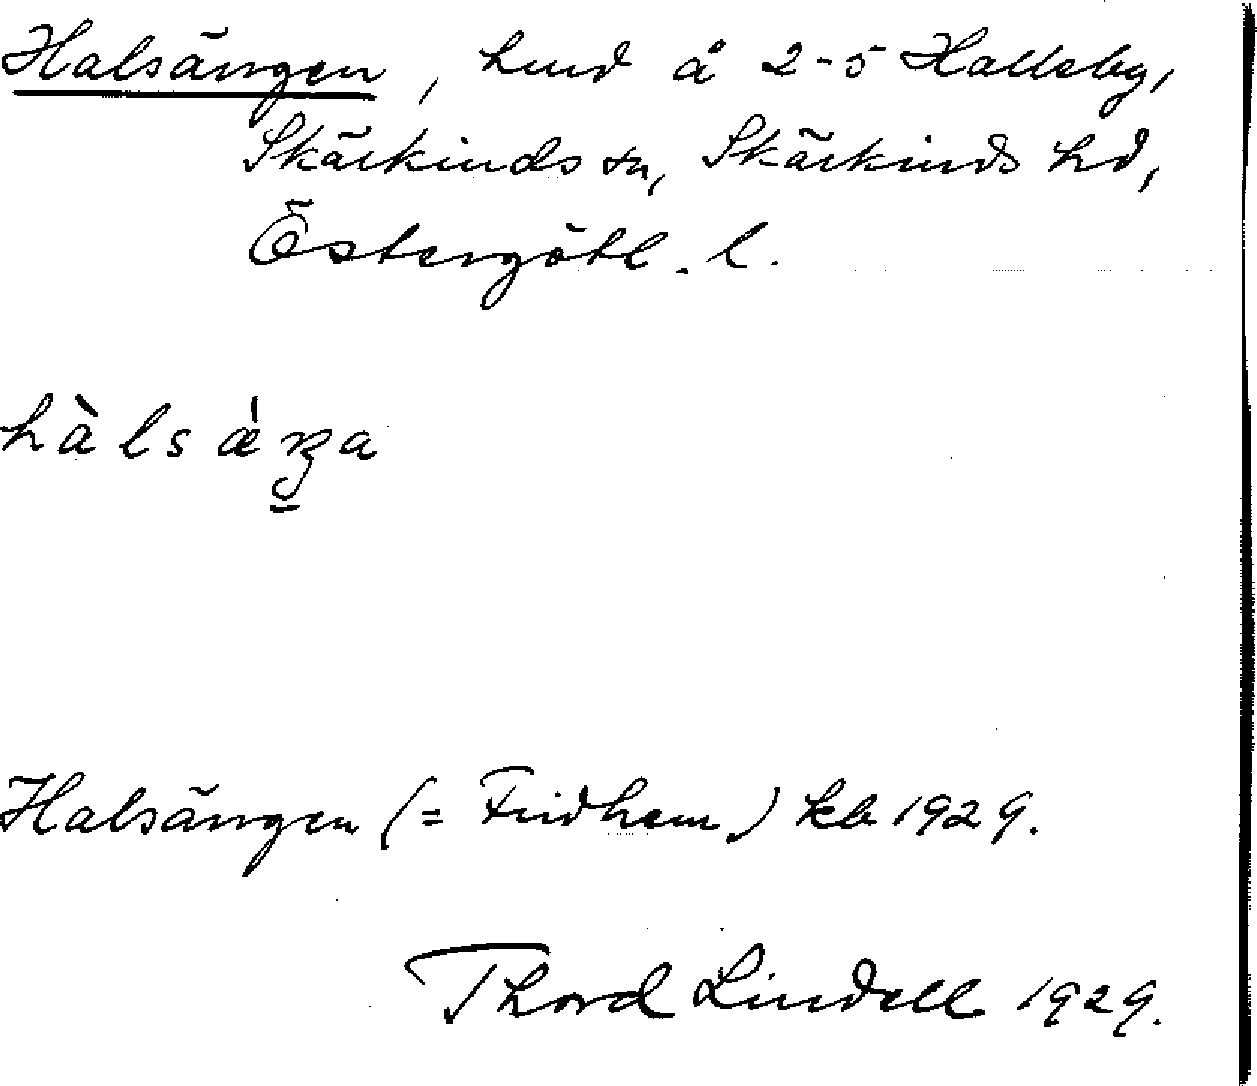 Halsängen, lund å 2-5 Halleby,
Skärkinds sn, Skärkinds hd,
Östergötl. l.
hàlsǽŋa
Halsängen (= Fridhem) kb 1929.
Thord Lindell 1929.